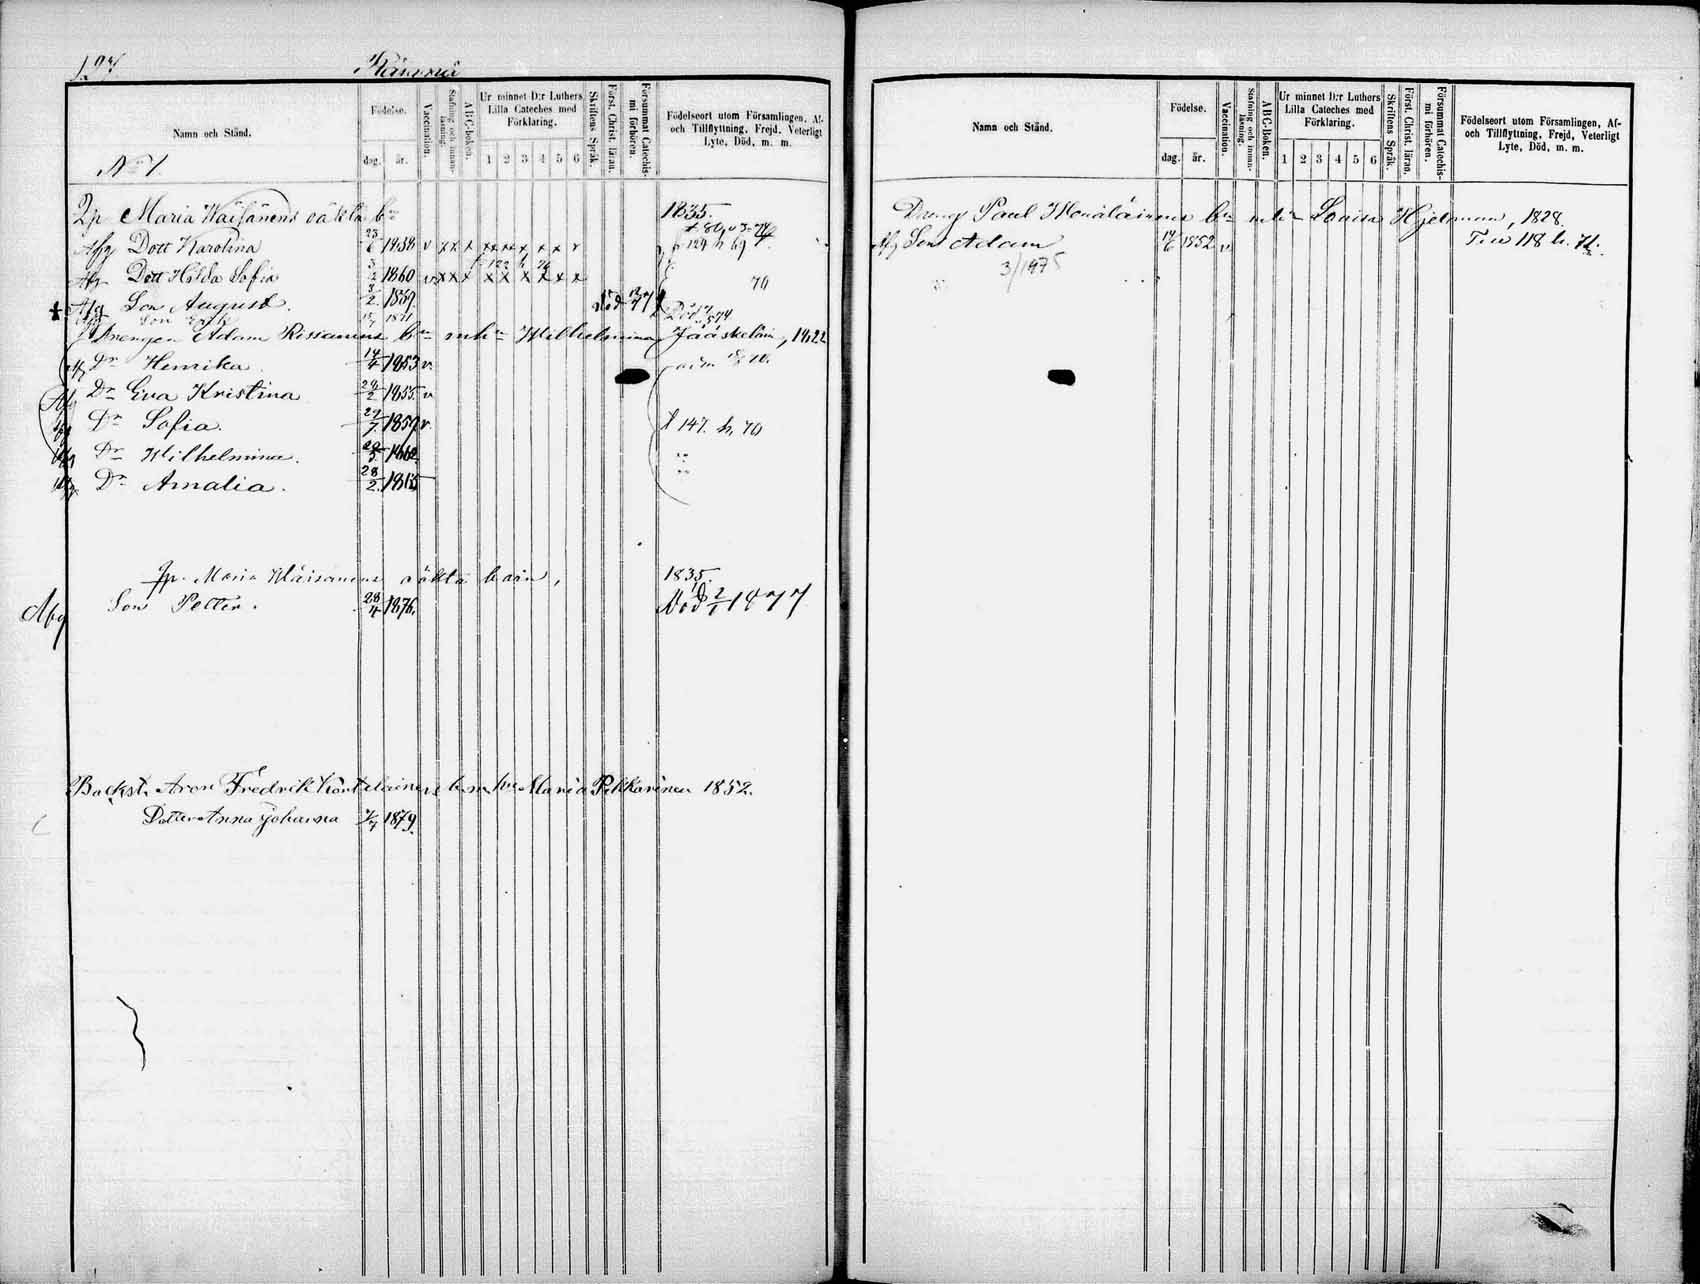 127
Namn och Stånd.
Födelse.
dag. år.
Vaccination.
Stafning och innanläsning.
ABC-boken.
Ur minnet D:r Luthers Lilla Cateches med Förklaring.
1 2 3 4 5 6
Skriftens Språk.
Först. Christ. läran.
Försummat Catechismi förhören.
Födelseort utom Församlingen, Af- och Tillflyttning, Frejd, Veterligt Lyte, Död, m. m.
N:o 1.
Maria Wäisänens oäkta b:n 1835.
Afg Dott Karolina 23/6 1858 v x x x x x x x x p 124 h 69
Afg Dott Hilda Sofia 1860 v x x x x x x x x x 70
Afg Son August. 2 Död 77
Son Erik 1871 Död 74
Drengen Adam Rissanens b:n m h:n Wilhelmina Jääskeläin, 1822
Afg D:r Henrika 14/4 1853 v.
Afg D:r Eva Kristina 24/2 1855 v
Afg D:r Sofia. 29/7 1857 v. f 147. h. 70
Afg D:r Wilhelmina.
Afg D:r Amalia. 28/2 1865
Maria Wäisänens oäkta barn, 1835.
Afg Son Petter. 28/4 1876. Död 2/1 1877
Backst. Aron Fredrik b. m. h:n Maria Pikkarinen 1852.
Dotter Anna Johanna 7/7 1879.
Namn och Stånd.
Födelse.
dag. år.
Vaccination.
Stafning och innanläsning.
ABC-boken.
Ur minnet D:r Luthers Lilla Cateches med Förklaring.
1 2 3 4 5 6
Skriftens Språk.
Först. Christ. läran.
Försummat Catechismi förhören.
Födelseort utom Församlingen, Af- och Tillflyttning, Frejd, Veterligt Lyte, Död, m. m.
Dreng Paul b:n m h:n Lovisa Hjelman, 1828.
Afg Son Adam 14/6 1852 v 118 h. 71.
3/1975